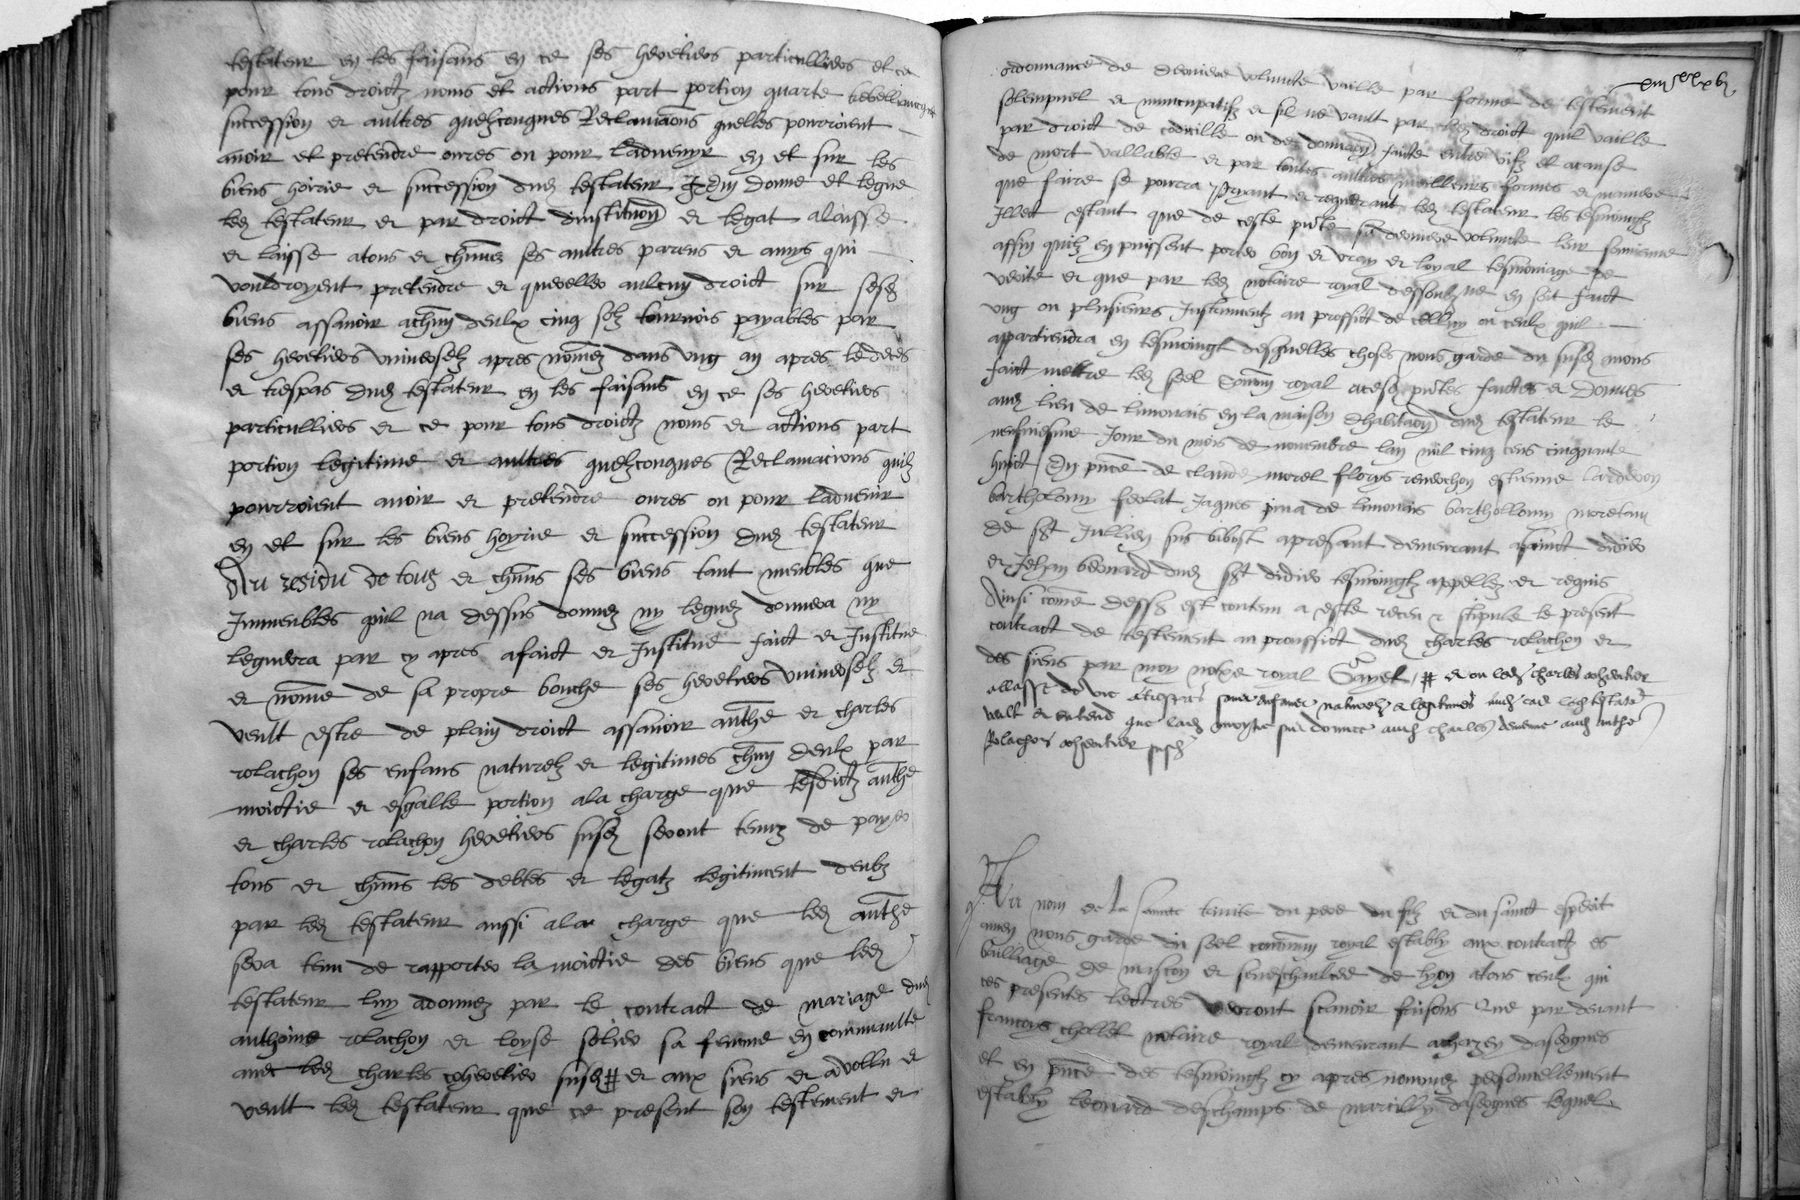 testateur en les faisans en ce ses heretiers particulliers et ce
pour tous droictz noms et actions part portion quarte
succession et autres quelzconques Reclamaons quelles pourroient
avoir et pretendre ores ou pour ladvenyr en et sur les
biens hoirie et succession dud testateur Item donne et legue
led testateur et par droict dinstituon et legat a laisse
et laisse a tous et chuns ses autres parens et amys qui
vouldroyent pretendre et quereller aulcun droict sur sesd
biens assavoir a chun deulx cinq solz tournois payables par
ses heretiers universelz apres nomez dans ung an apres le deces
et trespas dud testateur en les faisans en ce ses heretiers
particulliers et ce pour tous droictz noms et actions part
portion legitime et autres quelzconques Reclamacions quilz
pourroient avoir et pretendre ores ou pour ladvenir
en et sur les biens hoyrie et succession dud testateur
Au residu de tous et chuns ses biens tant meubles que
Immeubles quil na dessus donnez ny leguez donnera ny
leguera par cy apres a faict et Institue faict et Institue
et nome de sa propre bouche ses heretiers universelz et
veult estre de plain droict assavoir anthe et charles
rolachon ses enfans naturelz et legitimes chun deulx par
moictie et esgalle portion a la charge que lesdictz anthe
et charles rolachon heretiers susd seront tenuz de payer
tous et chuns les debtes et legatz legitiment deubz
par led testateur aussi a la charge que led anthe
sera tenu de rapporter la moictie des biens que led
testateur luy a donnez par le contract de mariage dud
anthoine rolachon et loyse sa femme en communaulte
avec led charles coheretier susd # et aux siens et a vollu et
veult led testateur que ce present son testement et
ordonnance de derniere volunte vaille par forme de testement
solempnel et nuncupatif et sil ne vault par droict quil vaille
par droict de codicille ou de donnaon faicte entre vifz et a cause
de mort vallable et par toutes autres meilleurs formes et maniere
que faire se pourra Pryant et requerant led testateur les tesmoingtz
Illect estant que de ceste pnte sa derniere volunte leur souvienne
affin quilz en puissent porter bon et vray et loyal tesmoniage de
verite et que par led notaire royal dessoubz ne en soit faict
ung ou plusieurs Instrumentz au proffict de celluy ou ceulx quil
appartiendra en tesmoingt desquelles choses nous garde du susd avons
faict mettre led seel comun royal a cesd pntes faictes et donnes
aud lieu de limonais en la maison dhabitaon dud testateur le
neufviesme Jour du mois de novembre lan mil cinq cens cinquante
huict En pnce de claude morel florys estienne
bartholomy Jaques pina de limonais bartholomy
de st Jullien sus bibost a present demeurant a sainct didier
et Jehan dud st didier tesmoingtz appellez et requis
Ainsi come dessus est contenu a este receu et stipule le present
contract de testement au prouffict dud charles rolachon et
des siens par moy notre royal Gayet # et ou led charles coheretier
allasse de vie a trespas sans enfans naturelz et legitimes aud cas led testateur
veult et entend que lad moytie sus donnee aud charles revienne aud anthe
Rolachon coheretier susd
Au nom de la saincte trinite du pere du filz et du sainct esperit
amen nous garde du seel commun royal estably aux contractz es
bailliage de mascon et seneschaulcee de lyon a tous ceulx qui
ces presentes lectres verront scavoir faisons Que par devant
francoys chollet notaire royal demeurant a chazey dasergues
et en pnce des tesmoingtz cy apres nommez personnellement
estably leonard deschamps de marcilly dasergues lequel